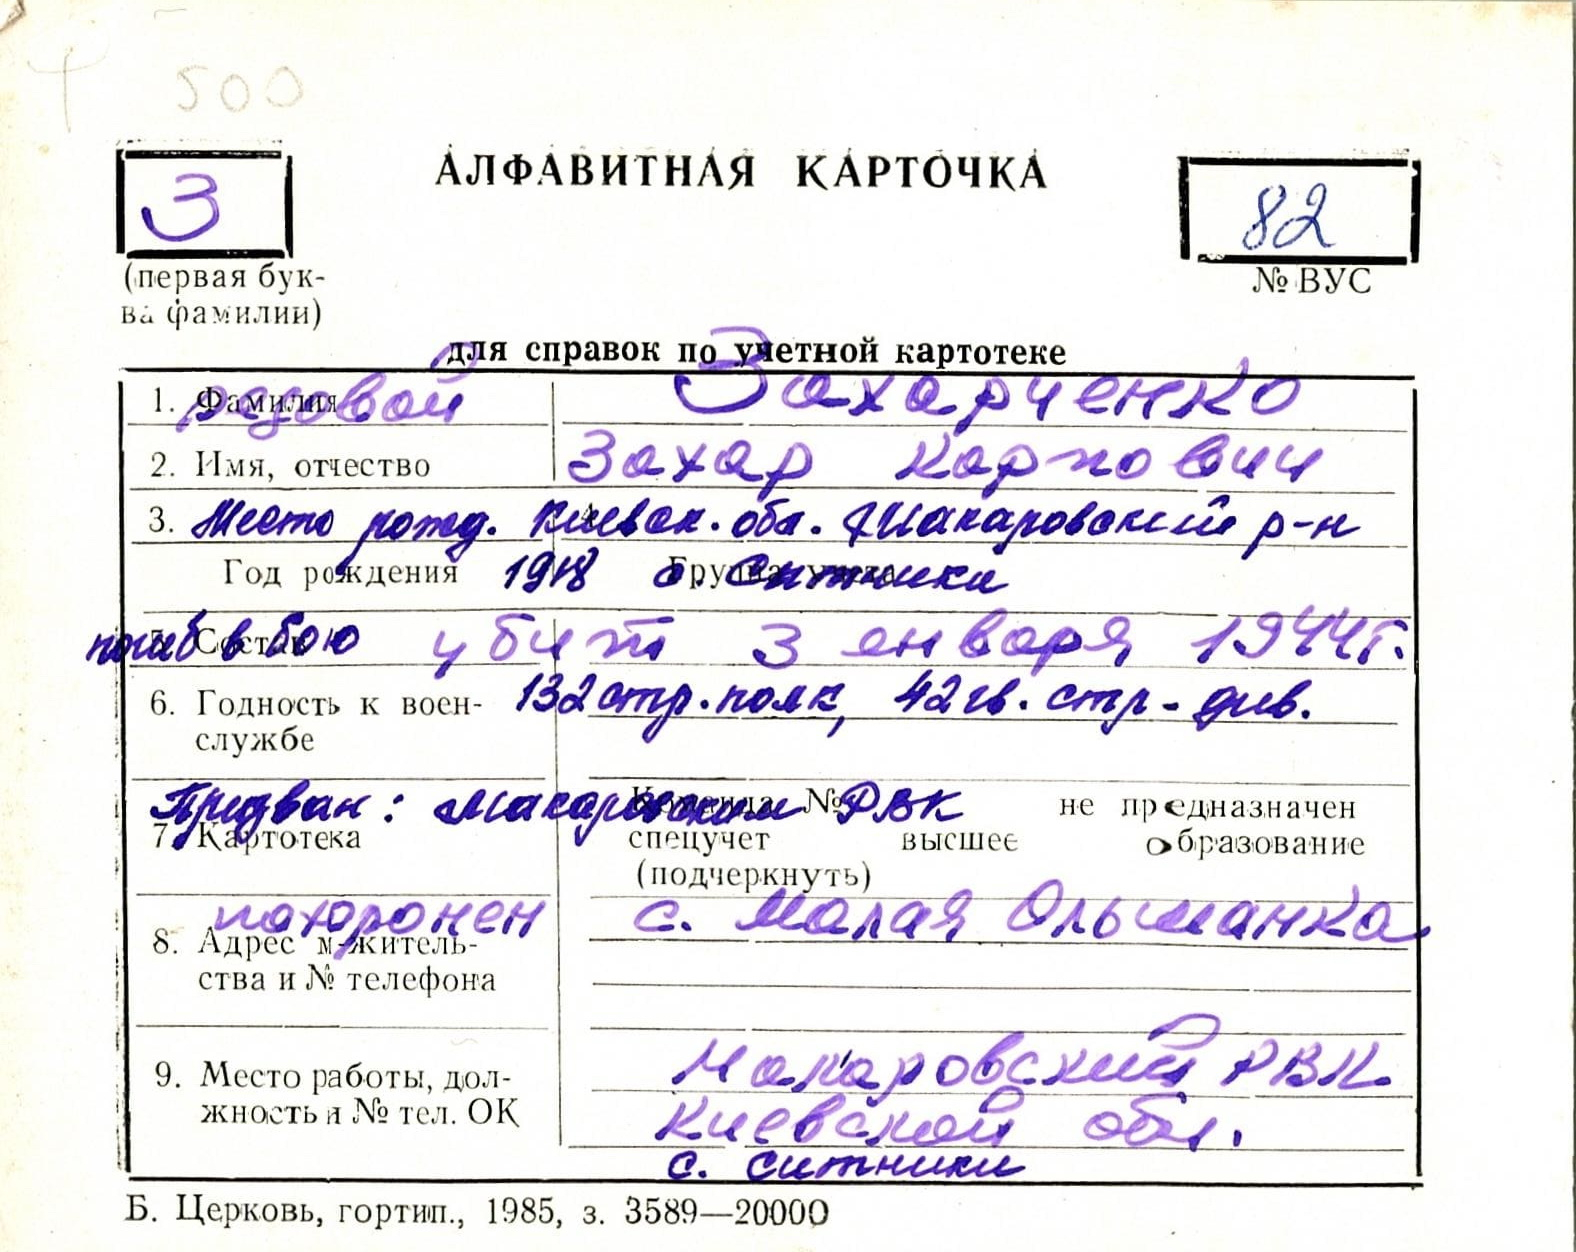 500
АЛФАВИТНАЯ КАРТОЧКА
З
82
(первая бук-
ва фамилии)
№ ВУС
для справок по учетной картотеке
1. Фамилия рядовой Захарченко
2. Имя, отчество Захар Карпович
3. Место рожд. Киевск. обл. Макаровский р-н
Год рождения 1918 Группа учета с. Ситники
5. Состав погиб в бою убит 3 января 1944 г.
6. Годность к воен- 132 стр. полк, 42 гв. стр. див.
службе
Призван: Макаровским РВК
Команда № не предназначен
7. Картотека спецучет высшее образование
(подчеркнуть)
похоронен с. Малая Ольшанка
8. Адрес м-житель-
ства и № телефона
9. Место работы, дол- Макаровский РВК.
жность и № тел. ОК Киевской обл.
с. Ситники
Б. Церковь, гортип., 1985, з. 3589—20000